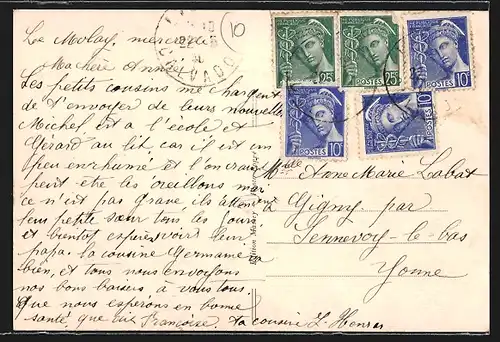 Le Molay, mercredi
Ma chère Anne
Les petits cousins me chargent
de t'envoyer de leurs nouvelles
Michel est à l'école et
Gérard au lit, car il est un
peu enrhumé et l'on craint
peut être les oreillons mais
ce n'est pas grave ils attendent
leur petite sœur tous les jours
et bientôt espère voir leur
papa. la cousine Germaine va
bien, et tous nous envoyons
nos bons baisers à vous tous
que nous espérons en bonne
santé, que Françoise. ta cousine L. Henras
CALVADOS
10
POSTES 25
POSTES 25
POSTES 10
POSTES 10
POSTES 10
Melle Anne Marie Labat
à Gigny par
Sennevoy-le-bas
Yonne